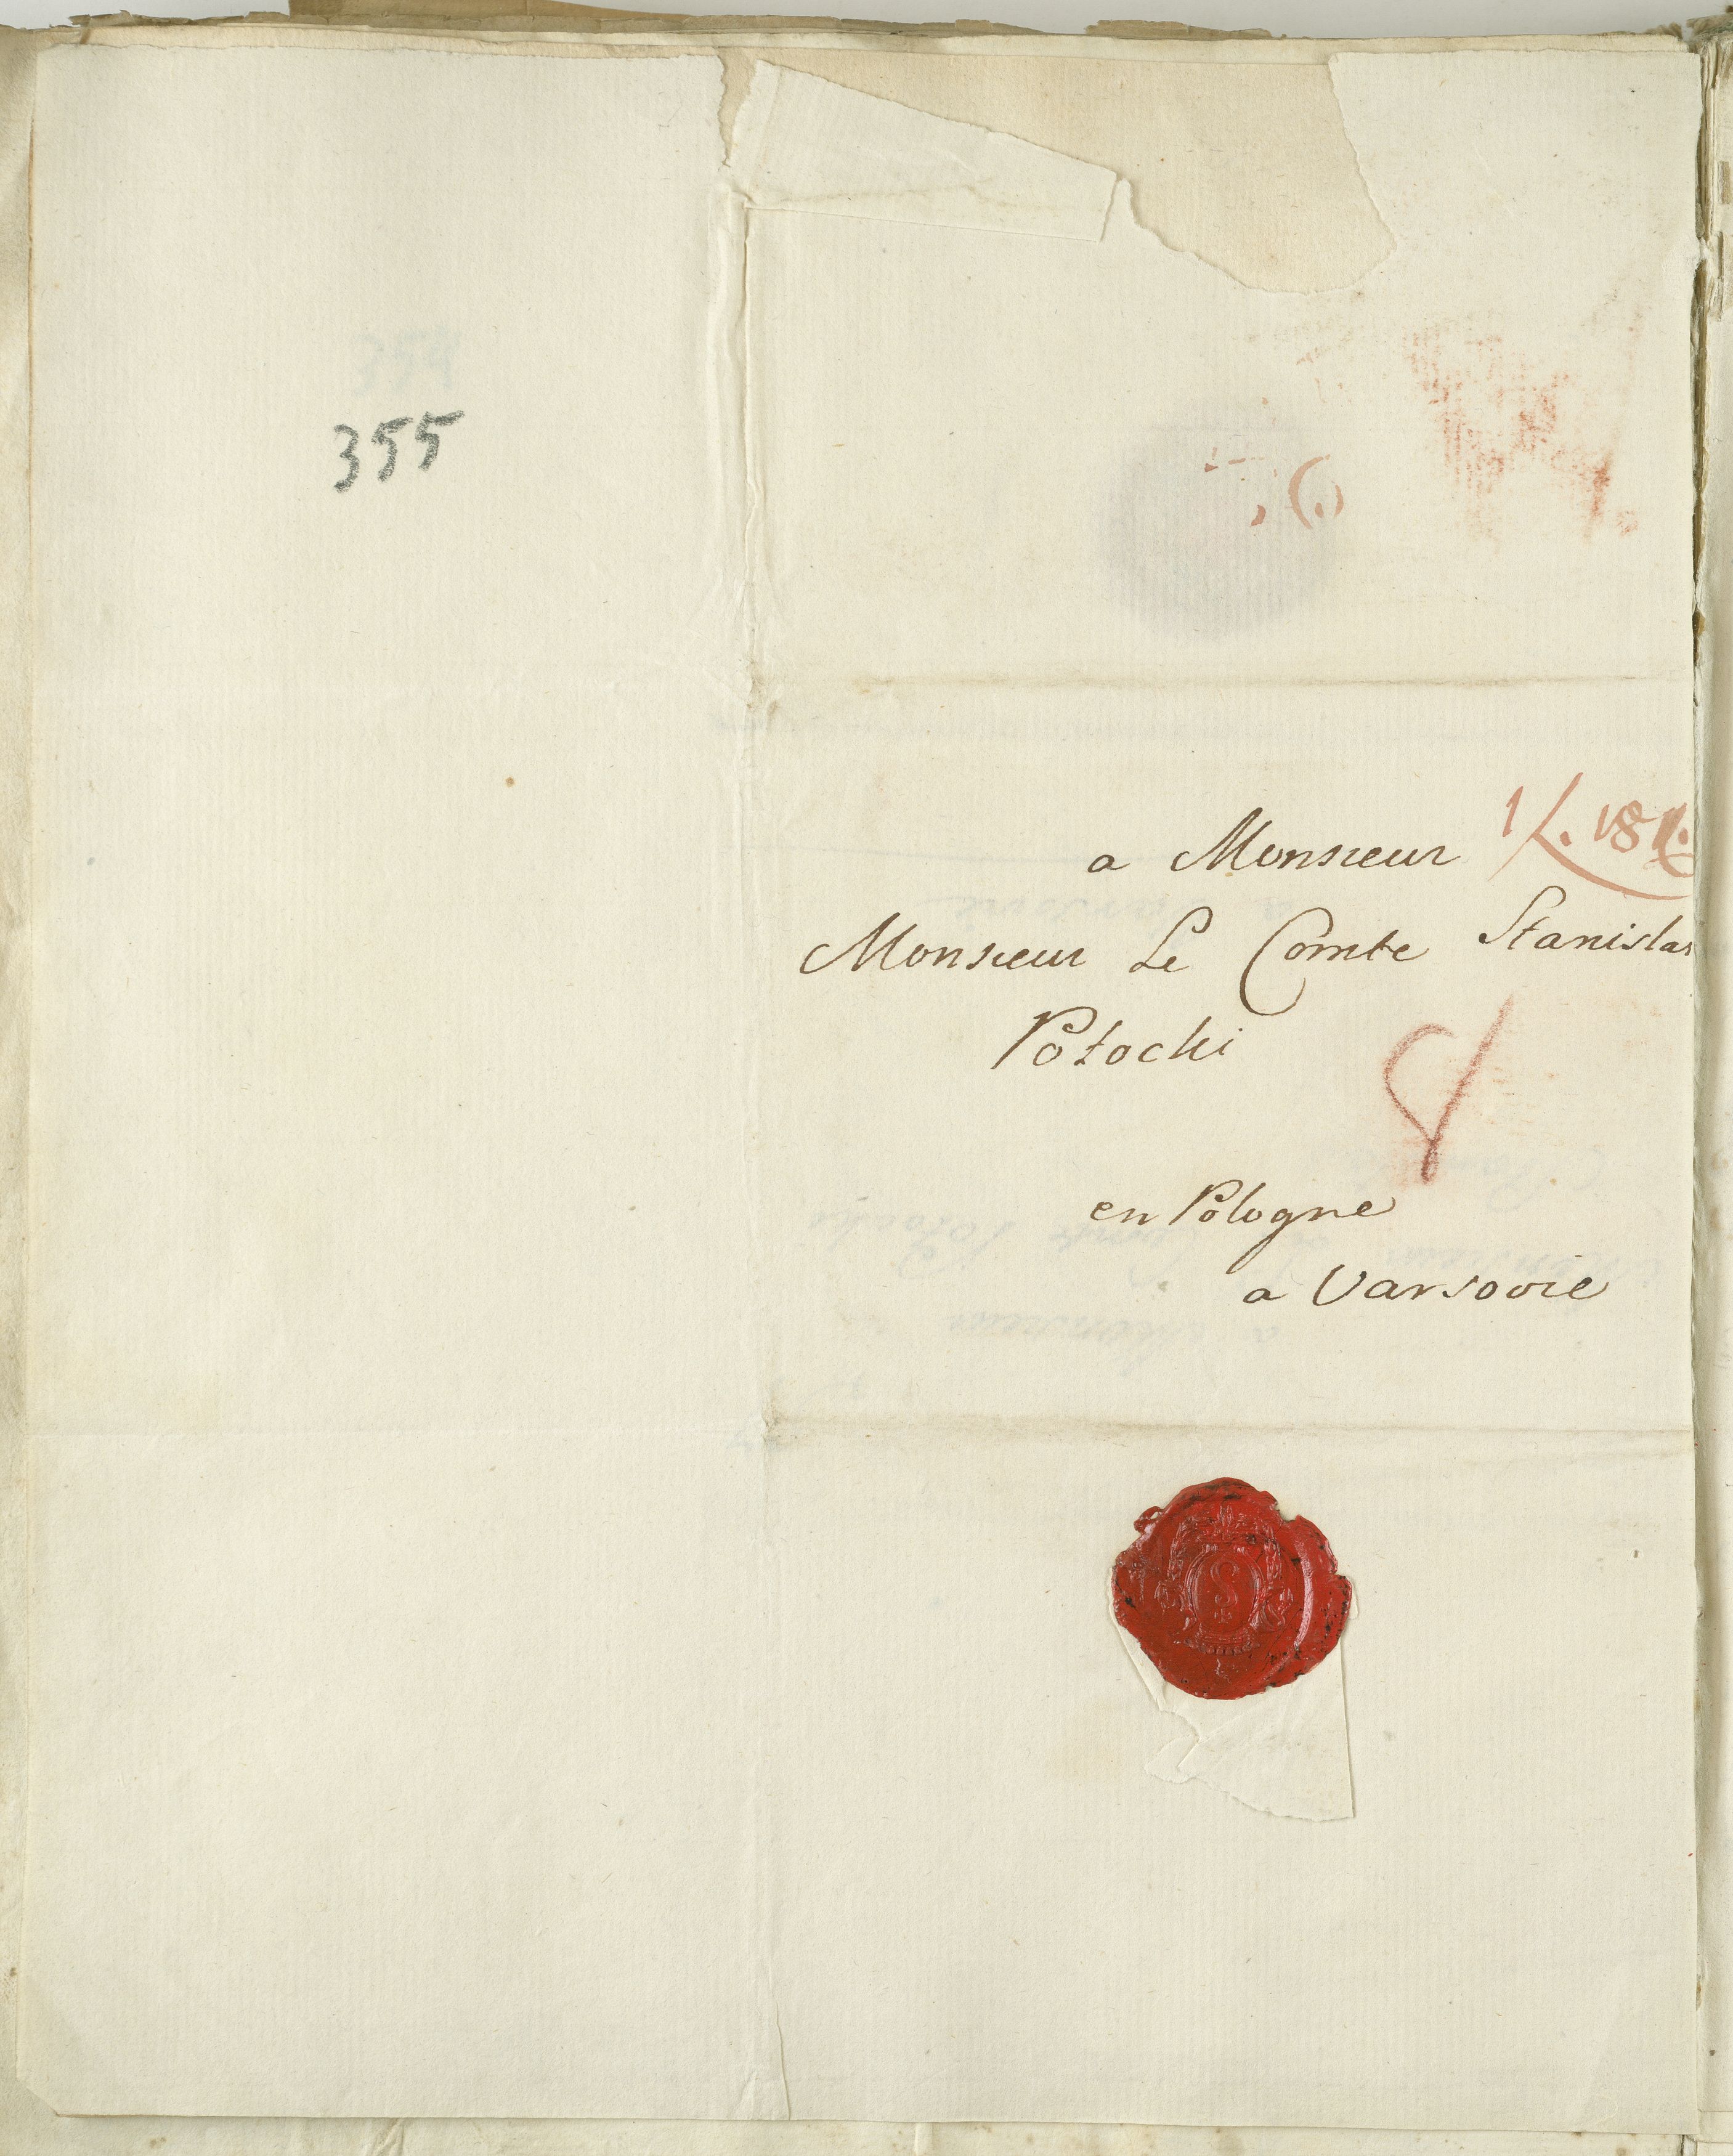 355
a Monsieur
Monsieur Le Comte Stanislas
Potocki
en Pologne
a Varsovie
S